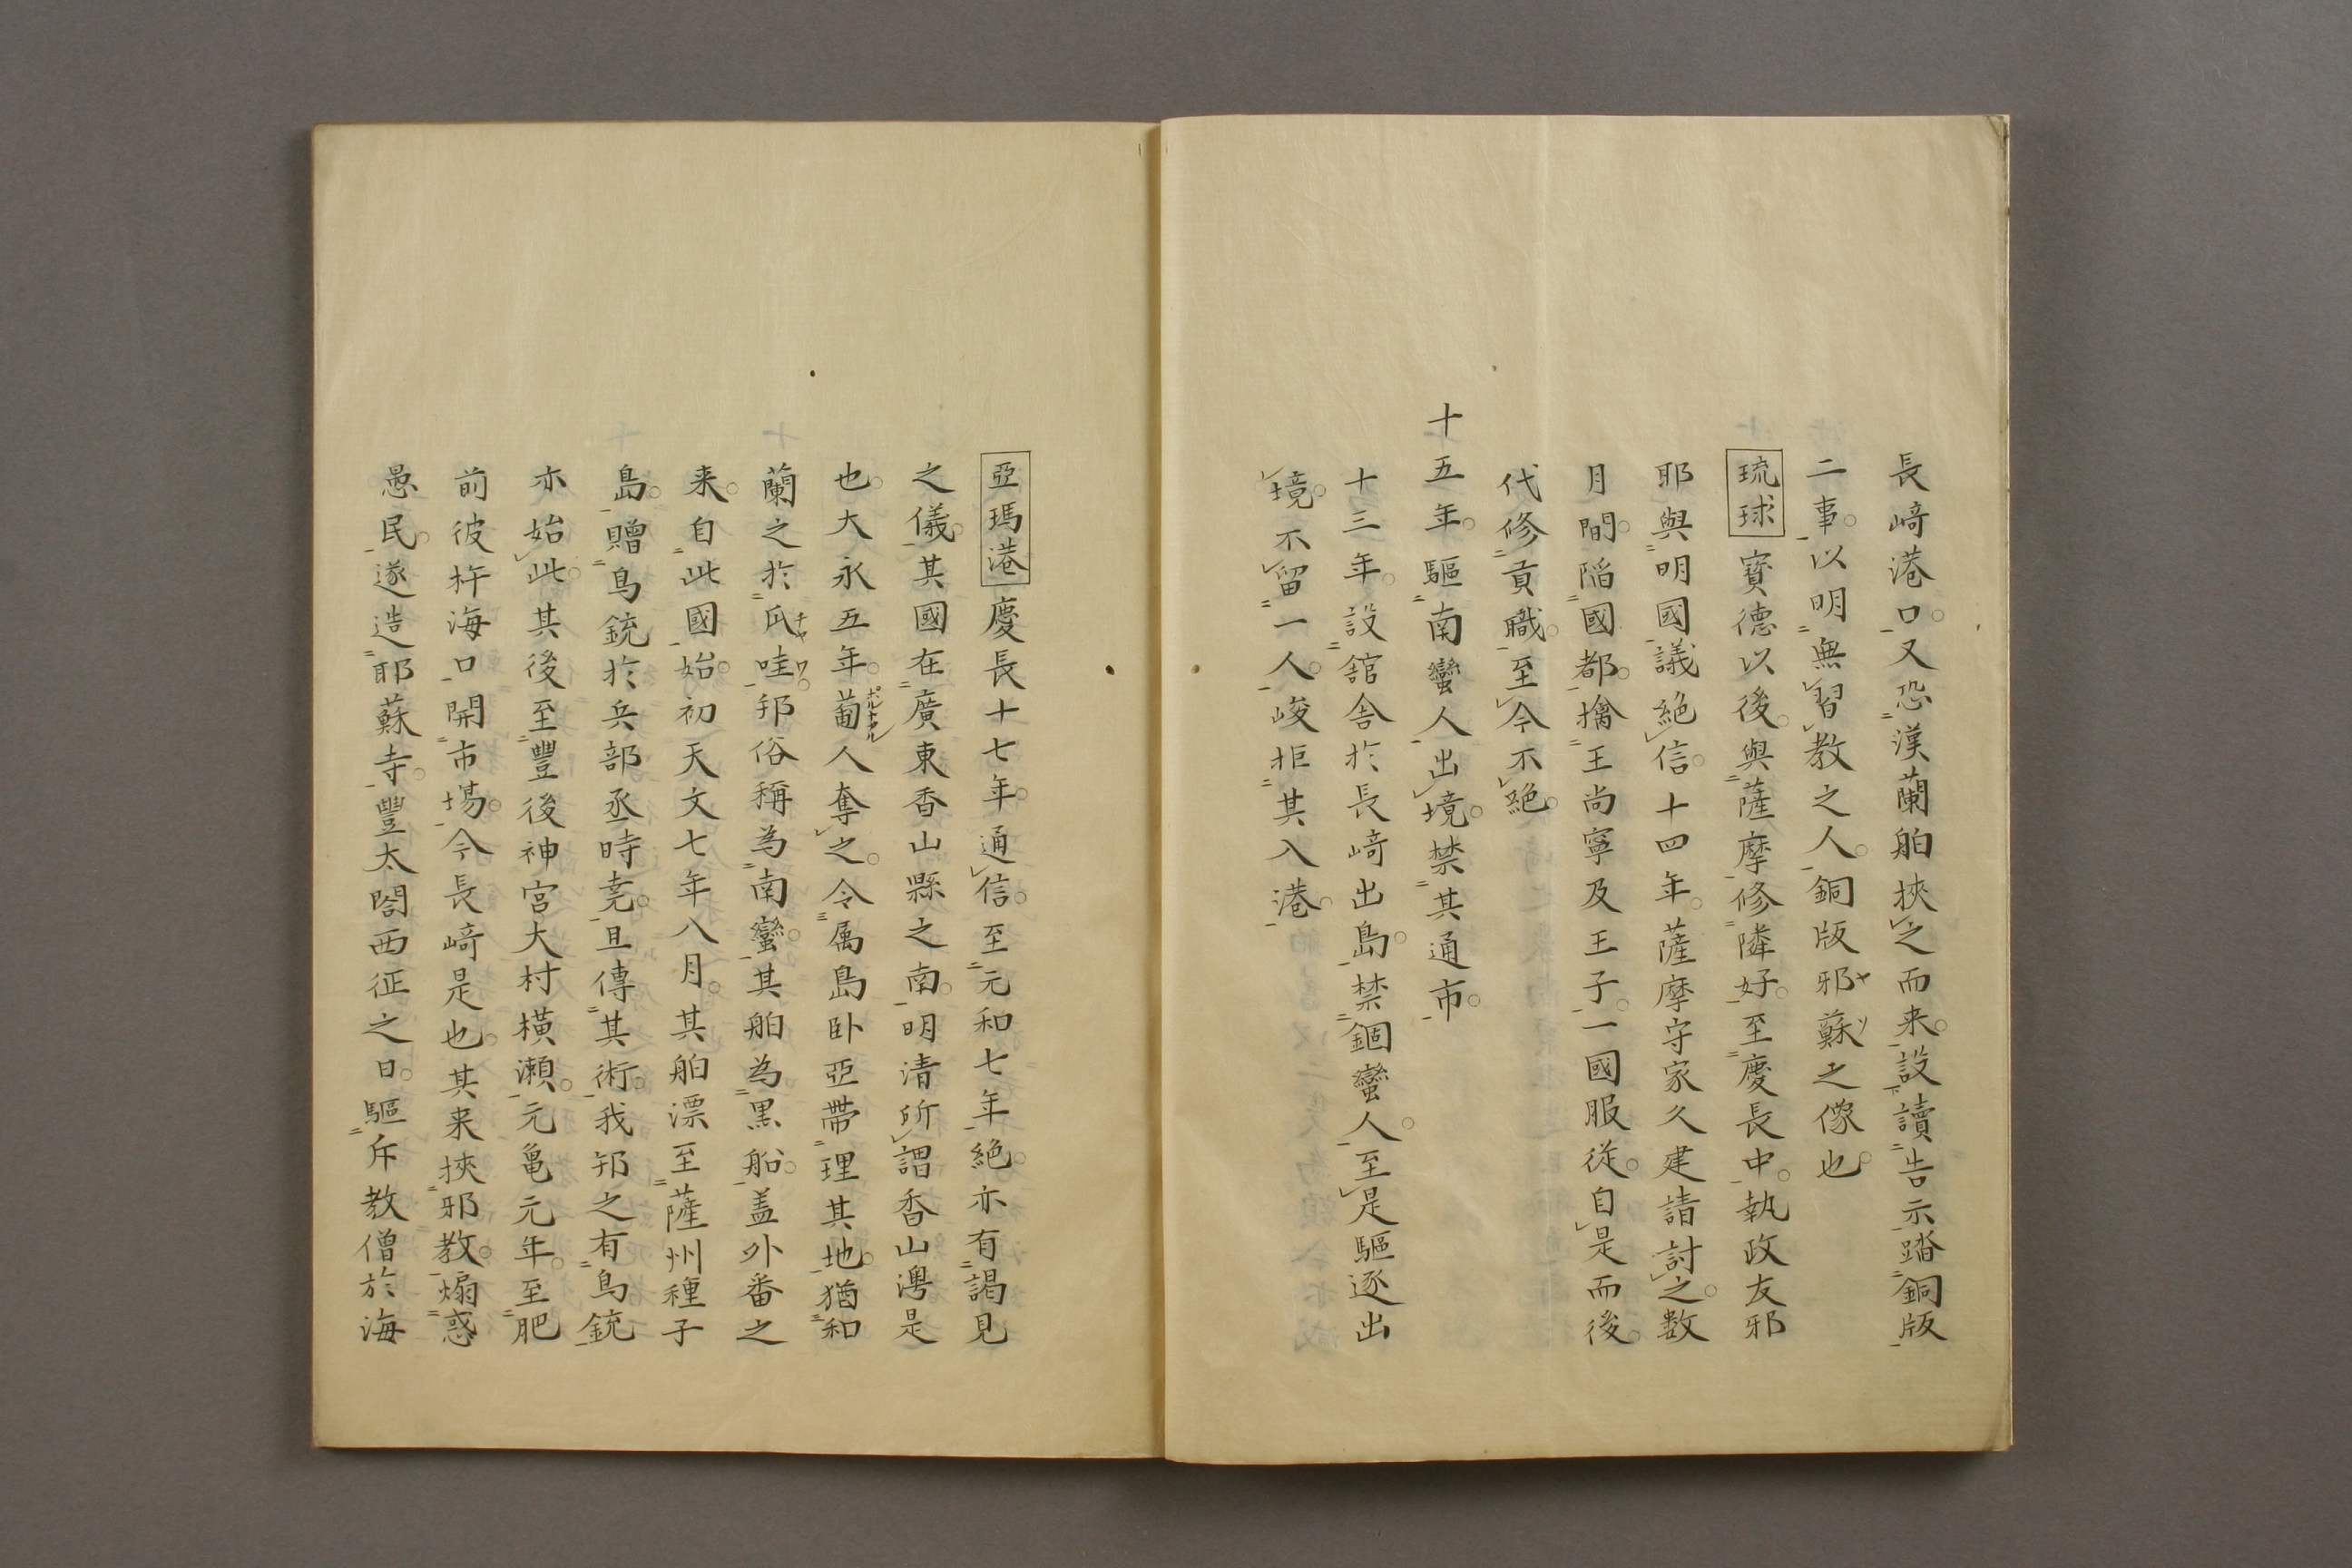 長﨑港口。又恐漢蘭舶挾之而来。設讀告示踏銅版
二事。以明無習教之人。銅版邪蘇之像也。
琉球 寳德以後。與薩摩修隣好。至慶長中。執政友邪
耶與明國議絶信。十四年。薩摩守家久建請討之。数
月間。陷國都。擒王尚寧及王子。一國服従。自是而後。
代修貢職。至今不絶。
十五年。驅南蠻人出境。禁其通市。
十三年。設舘舎於長﨑出島。禁錮蠻人。至是驅逐出
境。不留一人。峻拒其入港。
亞瑪港 慶長十七年。通信。至元和七年。絶。亦有謁見
之儀。其國在廣東香山縣之南。明清所謂香山澚是
也。大永五年。葡人奪之。令属島卧亞帶理其地。猶和
蘭之於瓜哇。邦俗稱為南蠻。其舶為黒船。盖外番之
来。自此國始。初天文七年八月。其舶漂至薩州種子
島。贈鳥銃於兵部丞時尭。且傳其術。我邦之有鳥銃
亦始此。其後至豐後神宮大村横瀬。元亀元年。至肥
前彼杵海口開市場。今長﨑是也。其来挾邪教。煽惑
愚民。遂造耶蘇寺。豐太閤西征之日。驅斥教僧於海